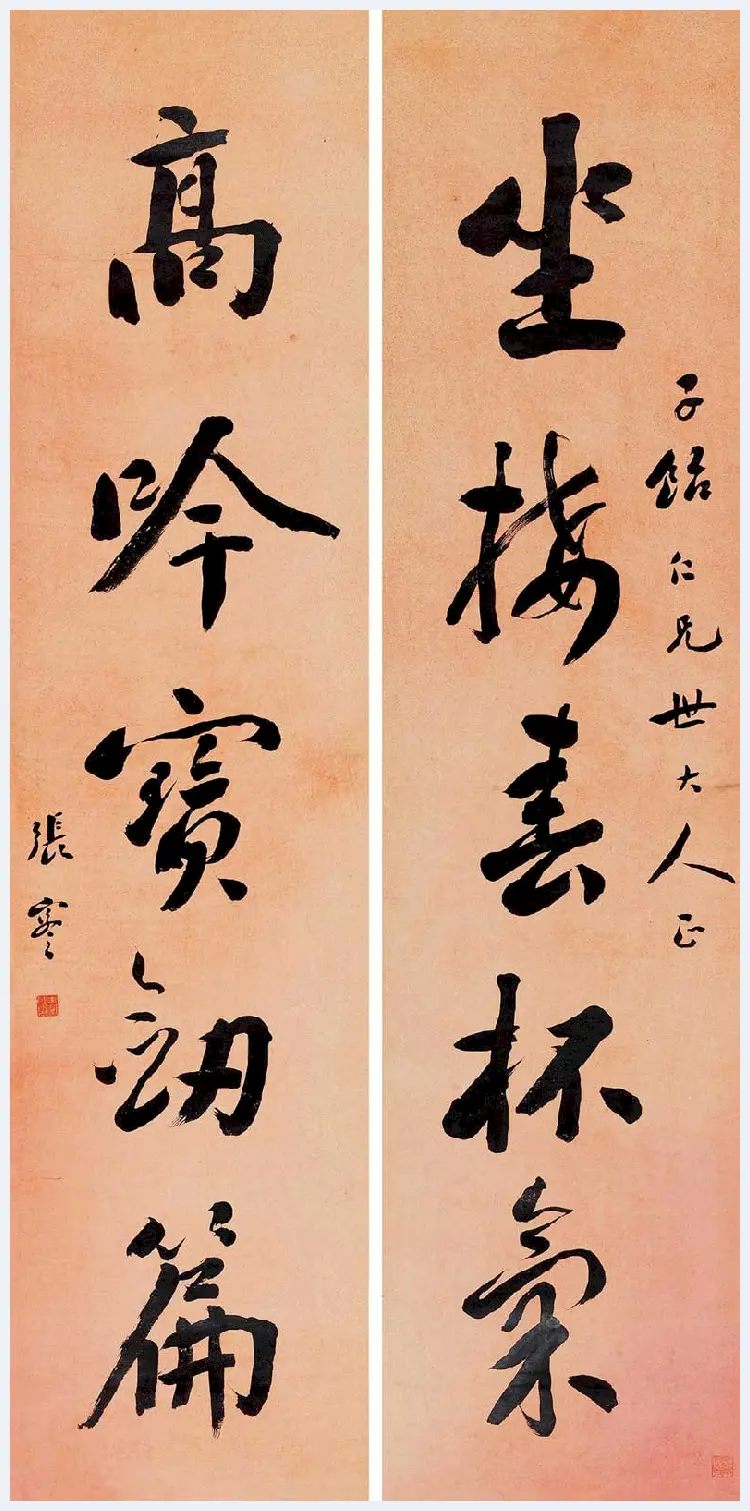 坐接春杯氣
子飴仁兄世大人正
高吟寶劍篇
張謇